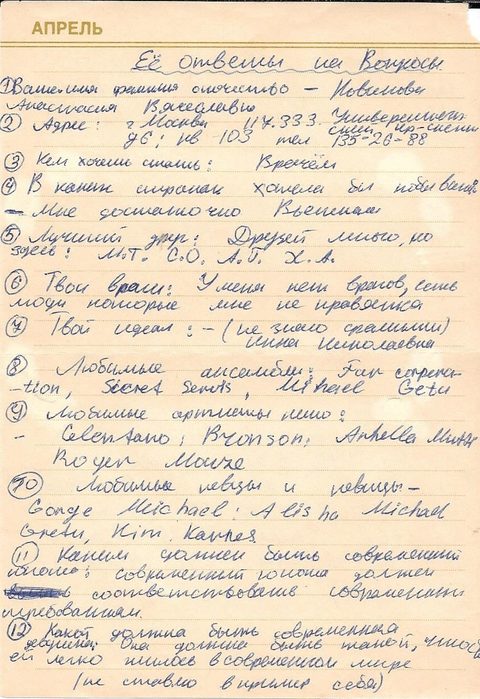 АПРЕЛЬ
Её ответы на Вопросы
① Ваше имя фамилия отчество — Новикова
Анастасия Вячеславна
② Адрес: г Москва 117.333. Университет-
ский пр-спект
д 6; кв 103 тел 135-26-88
③ Кем хочешь стать: Врачём
④ В каких странах хотела бы побывать
— Мне достаточно Вьетнам
⑤ Лучший друг: Друзей много, но
здесь: М.Т. С.О. А.Г. Х.А.
⑥ Твои враги: У меня нет врагов, есть
люди которые мне не нравятся
⑦ Твой идеал: — (не знаю фамилии)
Инна Николаевна
⑧ Любимые ансамбли: For corpora-
-tion, Secret Servis, Michael Getu
⑨ Любимые артисты кино:
- Celentano; Bronson; Arhella Mutti
Roger Mourze
10 Любимые певцы и певицы —
Gorge Michael: Alisha Michael
Gretu, Kim. Karnes
11 Каким должен быть современный
юноша: современный юноша должен
соответствовать современным
требованиям.
12 Какой должна быть современная
девушка: Она должна быть такой, чтобы
ей легко жилось в современном мире
(не ставлю в пример себя)